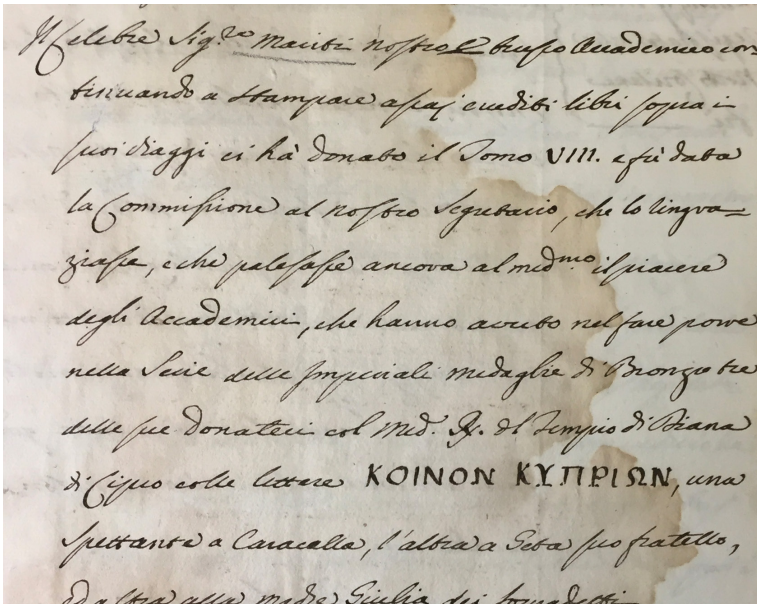 Il Celebre Sig.re Mariti nostro Etrusco Accademico con-
tinuando a stampare assai eruditi libri sopra i
suoi viaggi ci hà donato il Tomo VIII. e fù data
la Commissione al nostro Segretario, che lo ringra=
ziasse, e che palesasse ancora al med.mo il piacere
degli Accademici, che hanno avuto nel fare porre
nella Serie delle Imperiali Medaglie di Bronzo tre
delle sue donateci col Med. del Tempio di Diana
di Cipro colle lettere ΚΟΙΝΟΝ ΚΥΠΡΙΩΝ, una
spettante a Caracalla, l'altra a Geta suo fratello,
ed altra alla madre Giulia dei sopradetti